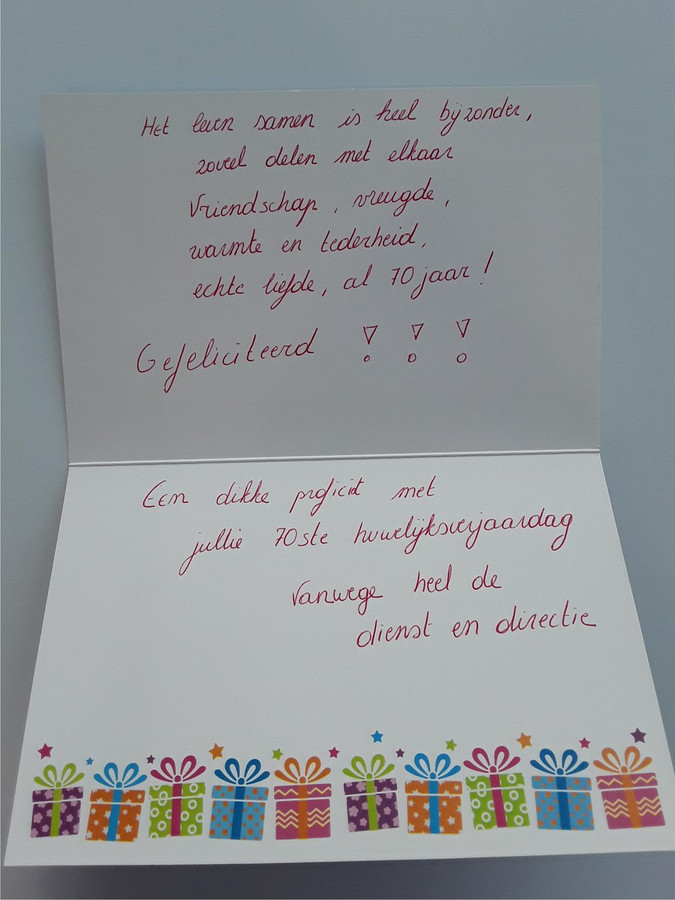 Het leven samen is heel bijzonder,
zoveel delen met elkaar
Vriendschap, vreugde,
warmte en tederheid,
echte liefde, al 70 jaar!
Gefeliciteerd !!!
Een dikke proficiat met
jullie 70ste huwelijksverjaardag
Vanwege heel de
dienst en directie